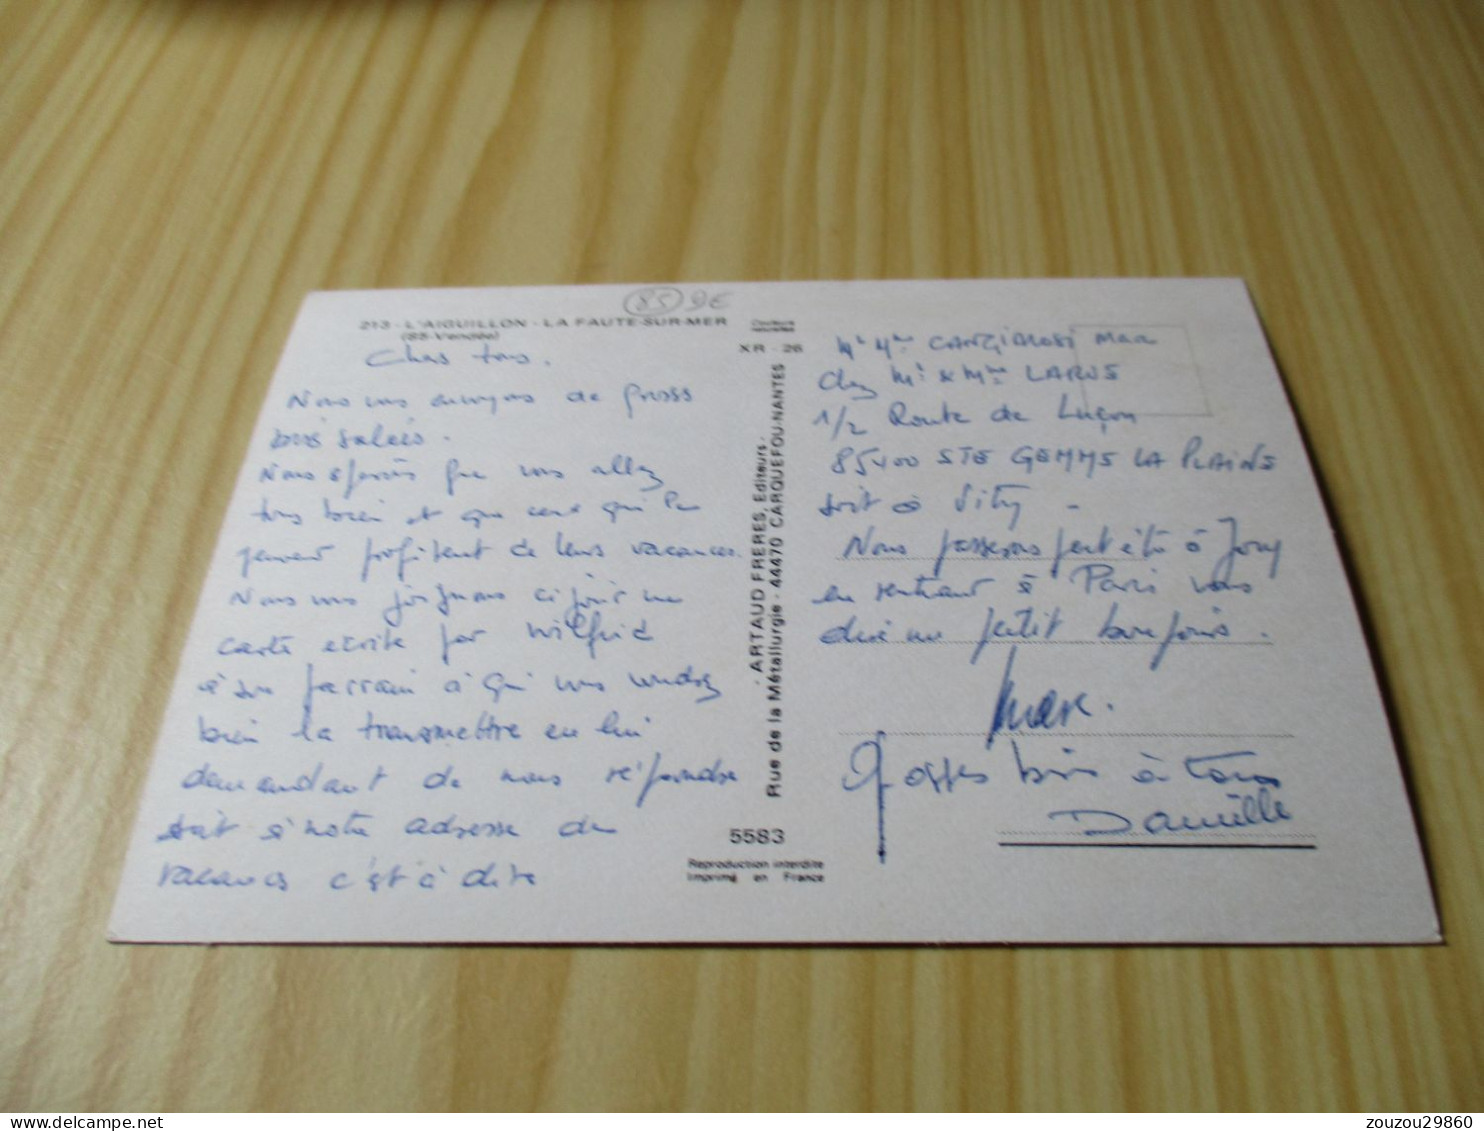 85 9E
213 - L'AIGUILLON - LA FAUTE-SUR-MER
(85-Vendée)
Couleurs
naturelles
XR - 26
Chers tous.
Nous vous envoyons de grosses
bises salées.
Nous espérons que vous allez
tous bien et que ceux qui le
peuvent profitent de leurs vacances.
Nous vous joignons ci joint une
carte ecrite par Wilfrid
à son parrain à qui vous voudrez
bien la transmettre en lui
demandant de nous répondre
soit à notre adresse de
vacances c'est à dire
- ARTAUD FRERES, Editeurs -
Rue de la Métallurgie - 44470 CARQUEFOU-NANTES
5583
Reproduction interdite
Imprimé en France
Mr Mme CANGIALOSI Marc
chez Mr & Mme LARUE
1/2 Route de Luçon
85400 STE GEMME LA PLAINE
soit à Vitry -
Nous passerons peut être à Jouy
en rentrant à Paris vous
dire un petit bonjour.
Marc.
Grosses bises à tous
Danielle
zouzou29860